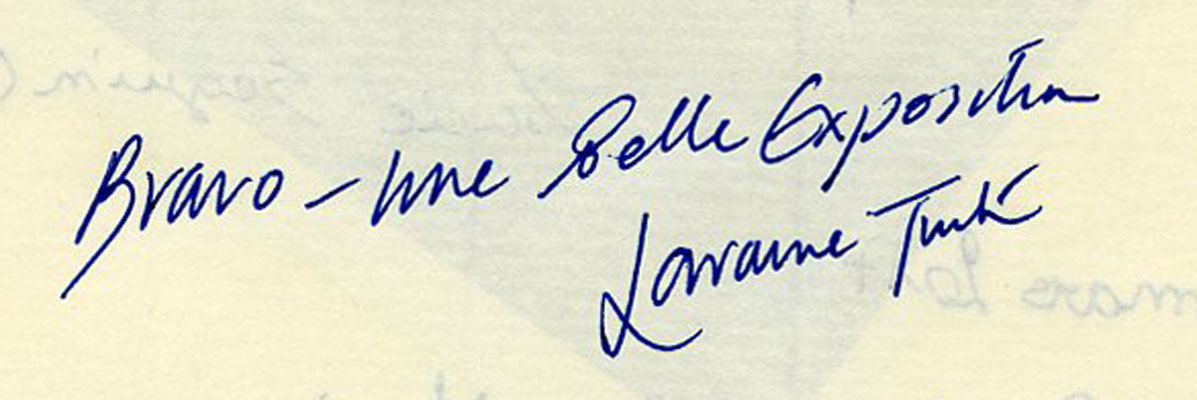 Bravo - Une Belle Exposition
Lorraine